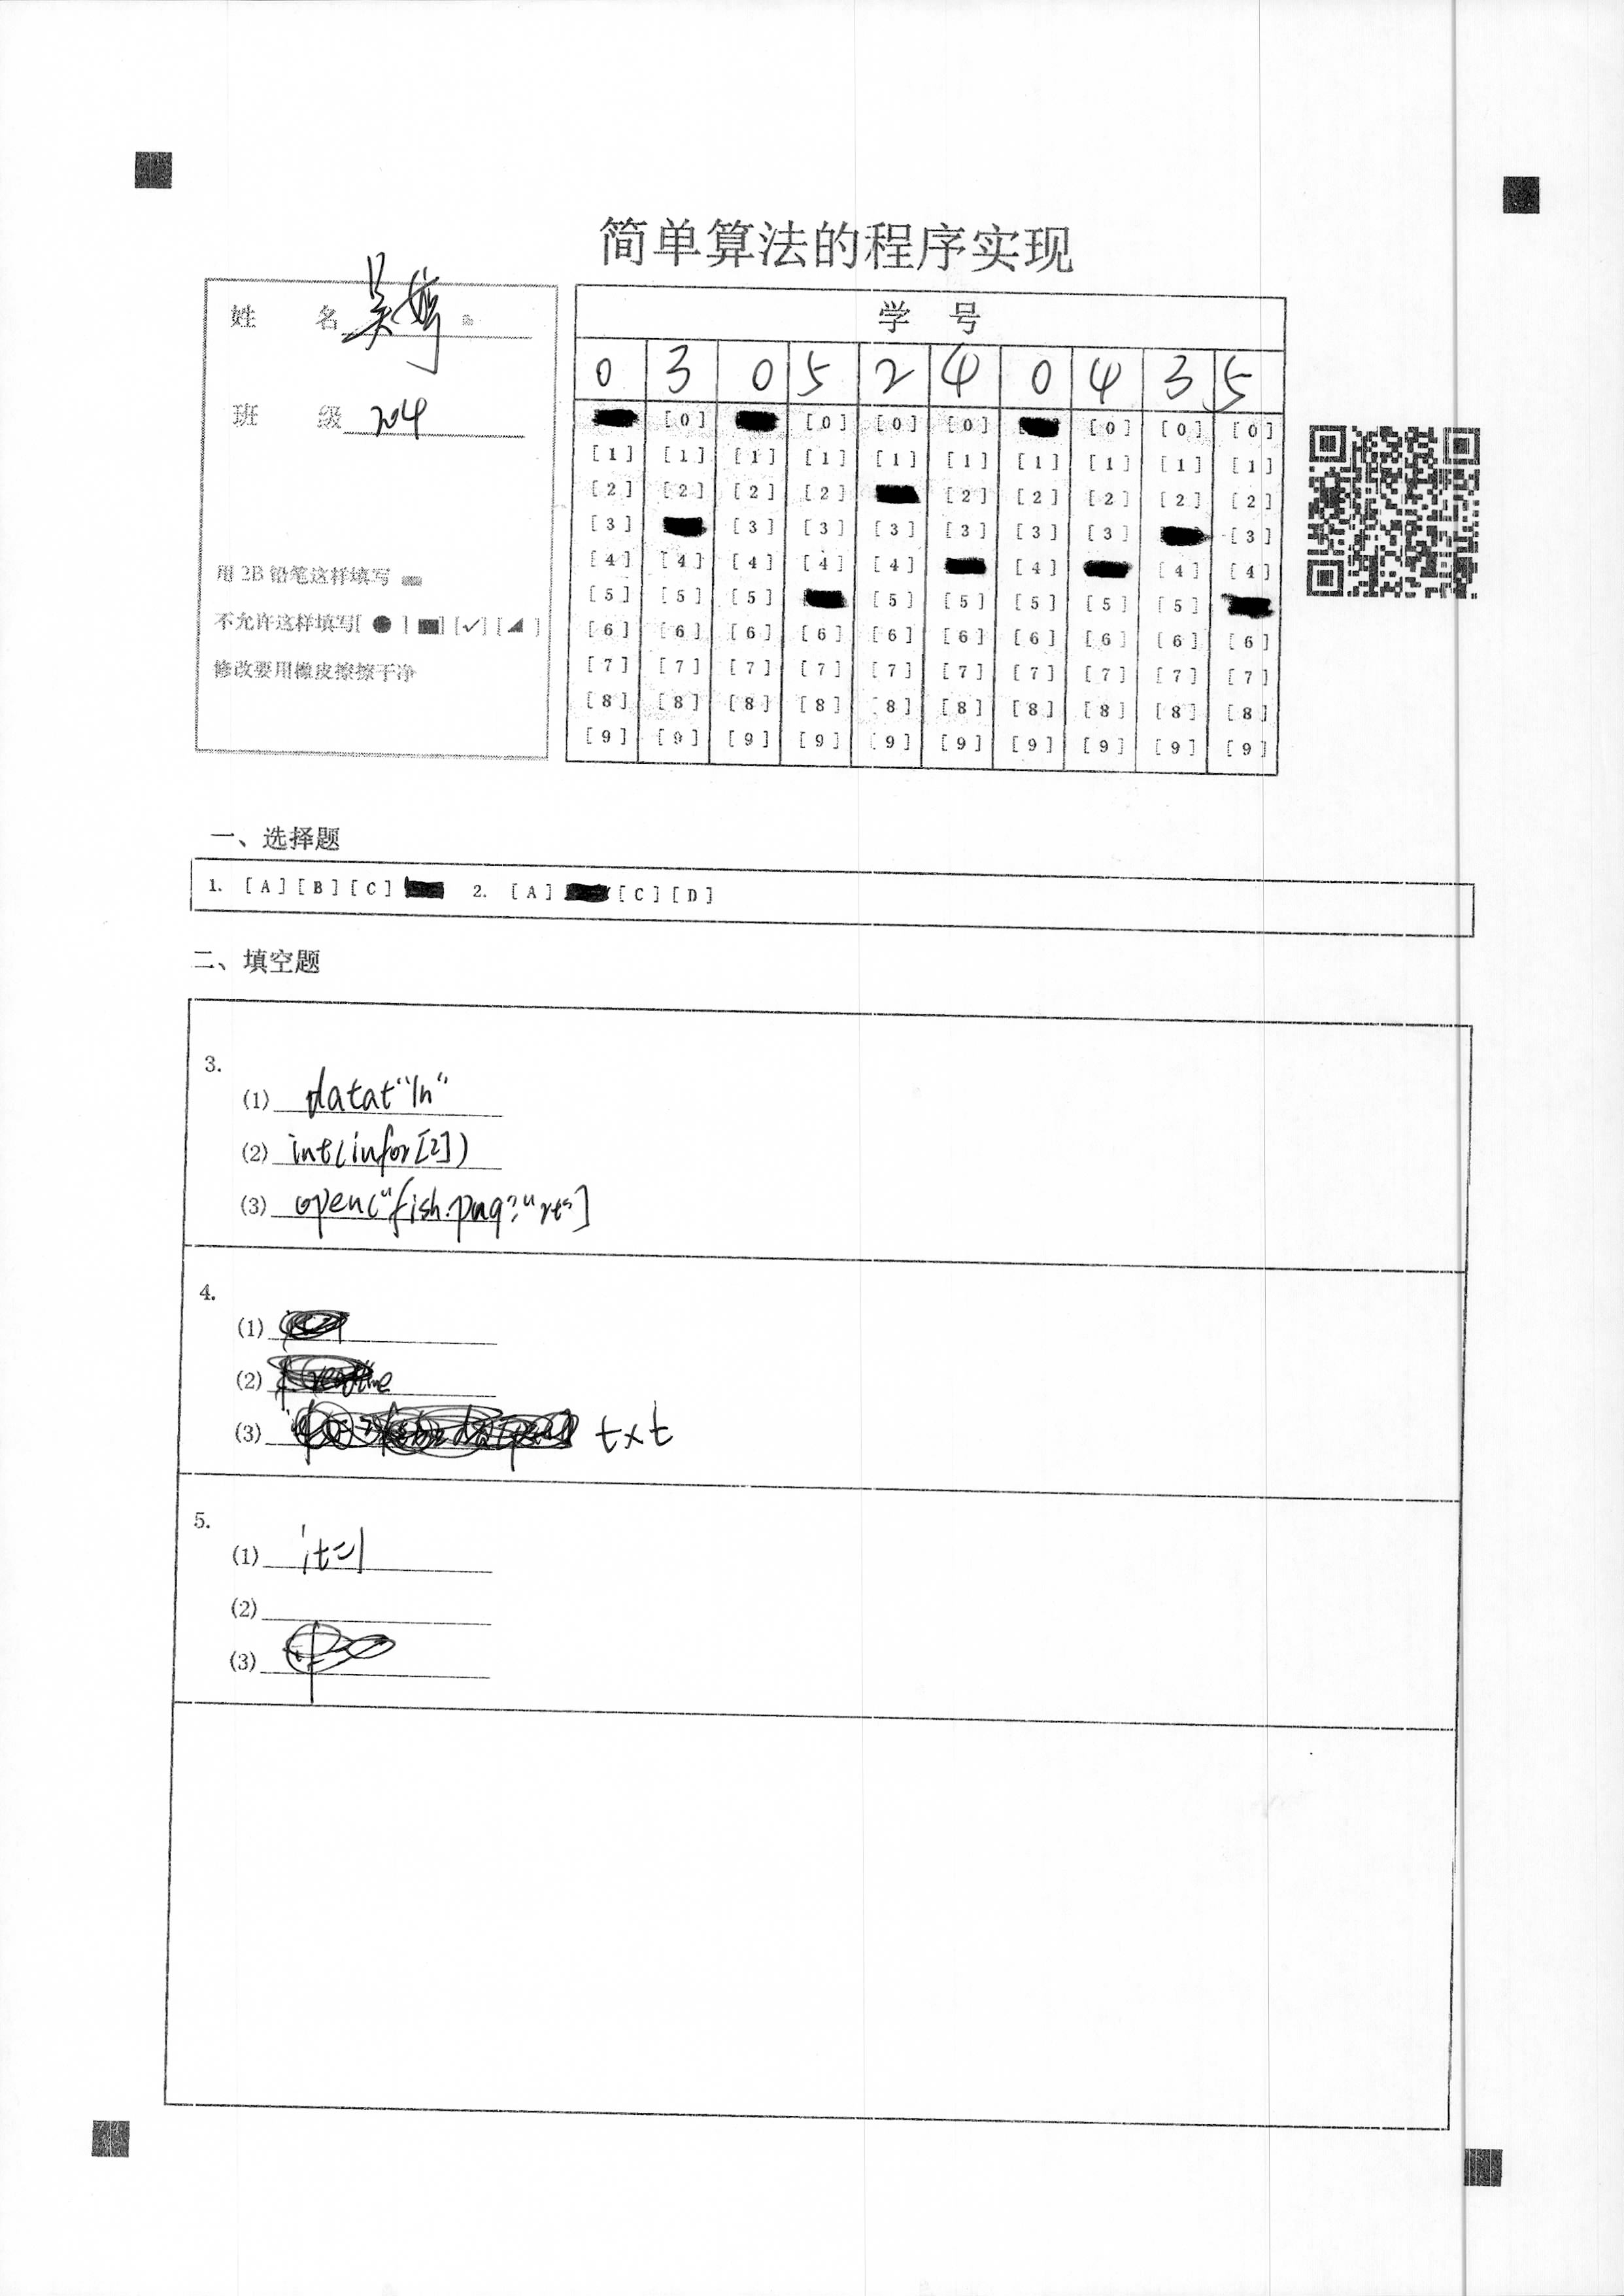 简单算法的程序实现
姓 名 吴婷
班 级 204
用 2B 铅笔这样填写
不允许这样填写[ ● ] [■] [✓] [◢ ]
修改要用橡皮擦擦干净
学 号
0 3 0 5 2 4 0 4 3 5
[0] [0] [0] [0] [0] [0] [0]
[1] [1] [1] [1] [1] [1] [1] [1] [1] [1]
[2] [2] [2] [2] [2] [2] [2] [2] [2]
[3] [3] [3] [3] [3] [3] [3] [3]
[4] [4] [4] [4] [4] [4] [4] [4]
[5] [5] [5] [5] [5] [5] [5] [5]
[6] [6] [6] [6] [6] [6] [6] [6] [6] [6]
[7] [7] [7] [7] [7] [7] [7] [7] [7] [7]
[8] [8] [8] [8] [8] [8] [8] [8] [8] [8]
[9] [9] [9] [9] [9] [9] [9] [9] [9] [9]
一、选择题
1. [A] [B] [C] 2. [A] [C] [D]
二、填空题
3.
(1) datat"\n"
(2) int(infor[2])
(3) open("fish.png"
4.
(1)
(2)
(3) txt
5.
(1) i+=1
(2)
(3)